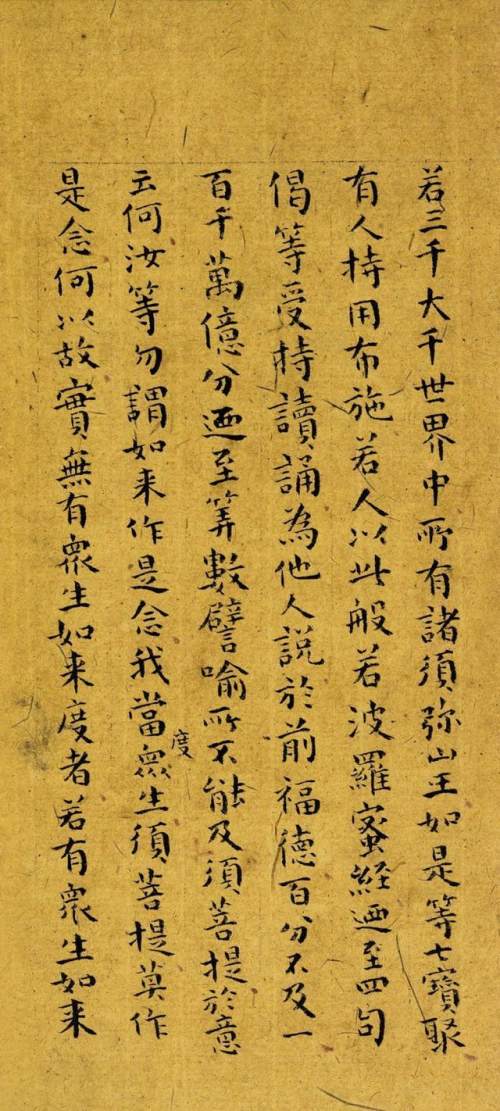 若三千大千世界中所有諸須弥山王如是等七寶聚
有人持用布施若人以此般若波羅蜜経迺至四句
偈等受持讀誦為他人説於前福德百分不及一
百千萬億分迺至筭數譬喻所不能及須菩提於意
云何汝等勿謂如来作是念我當度衆生須菩提莫作
是念何以故實無有衆生如来度者若有衆生如来